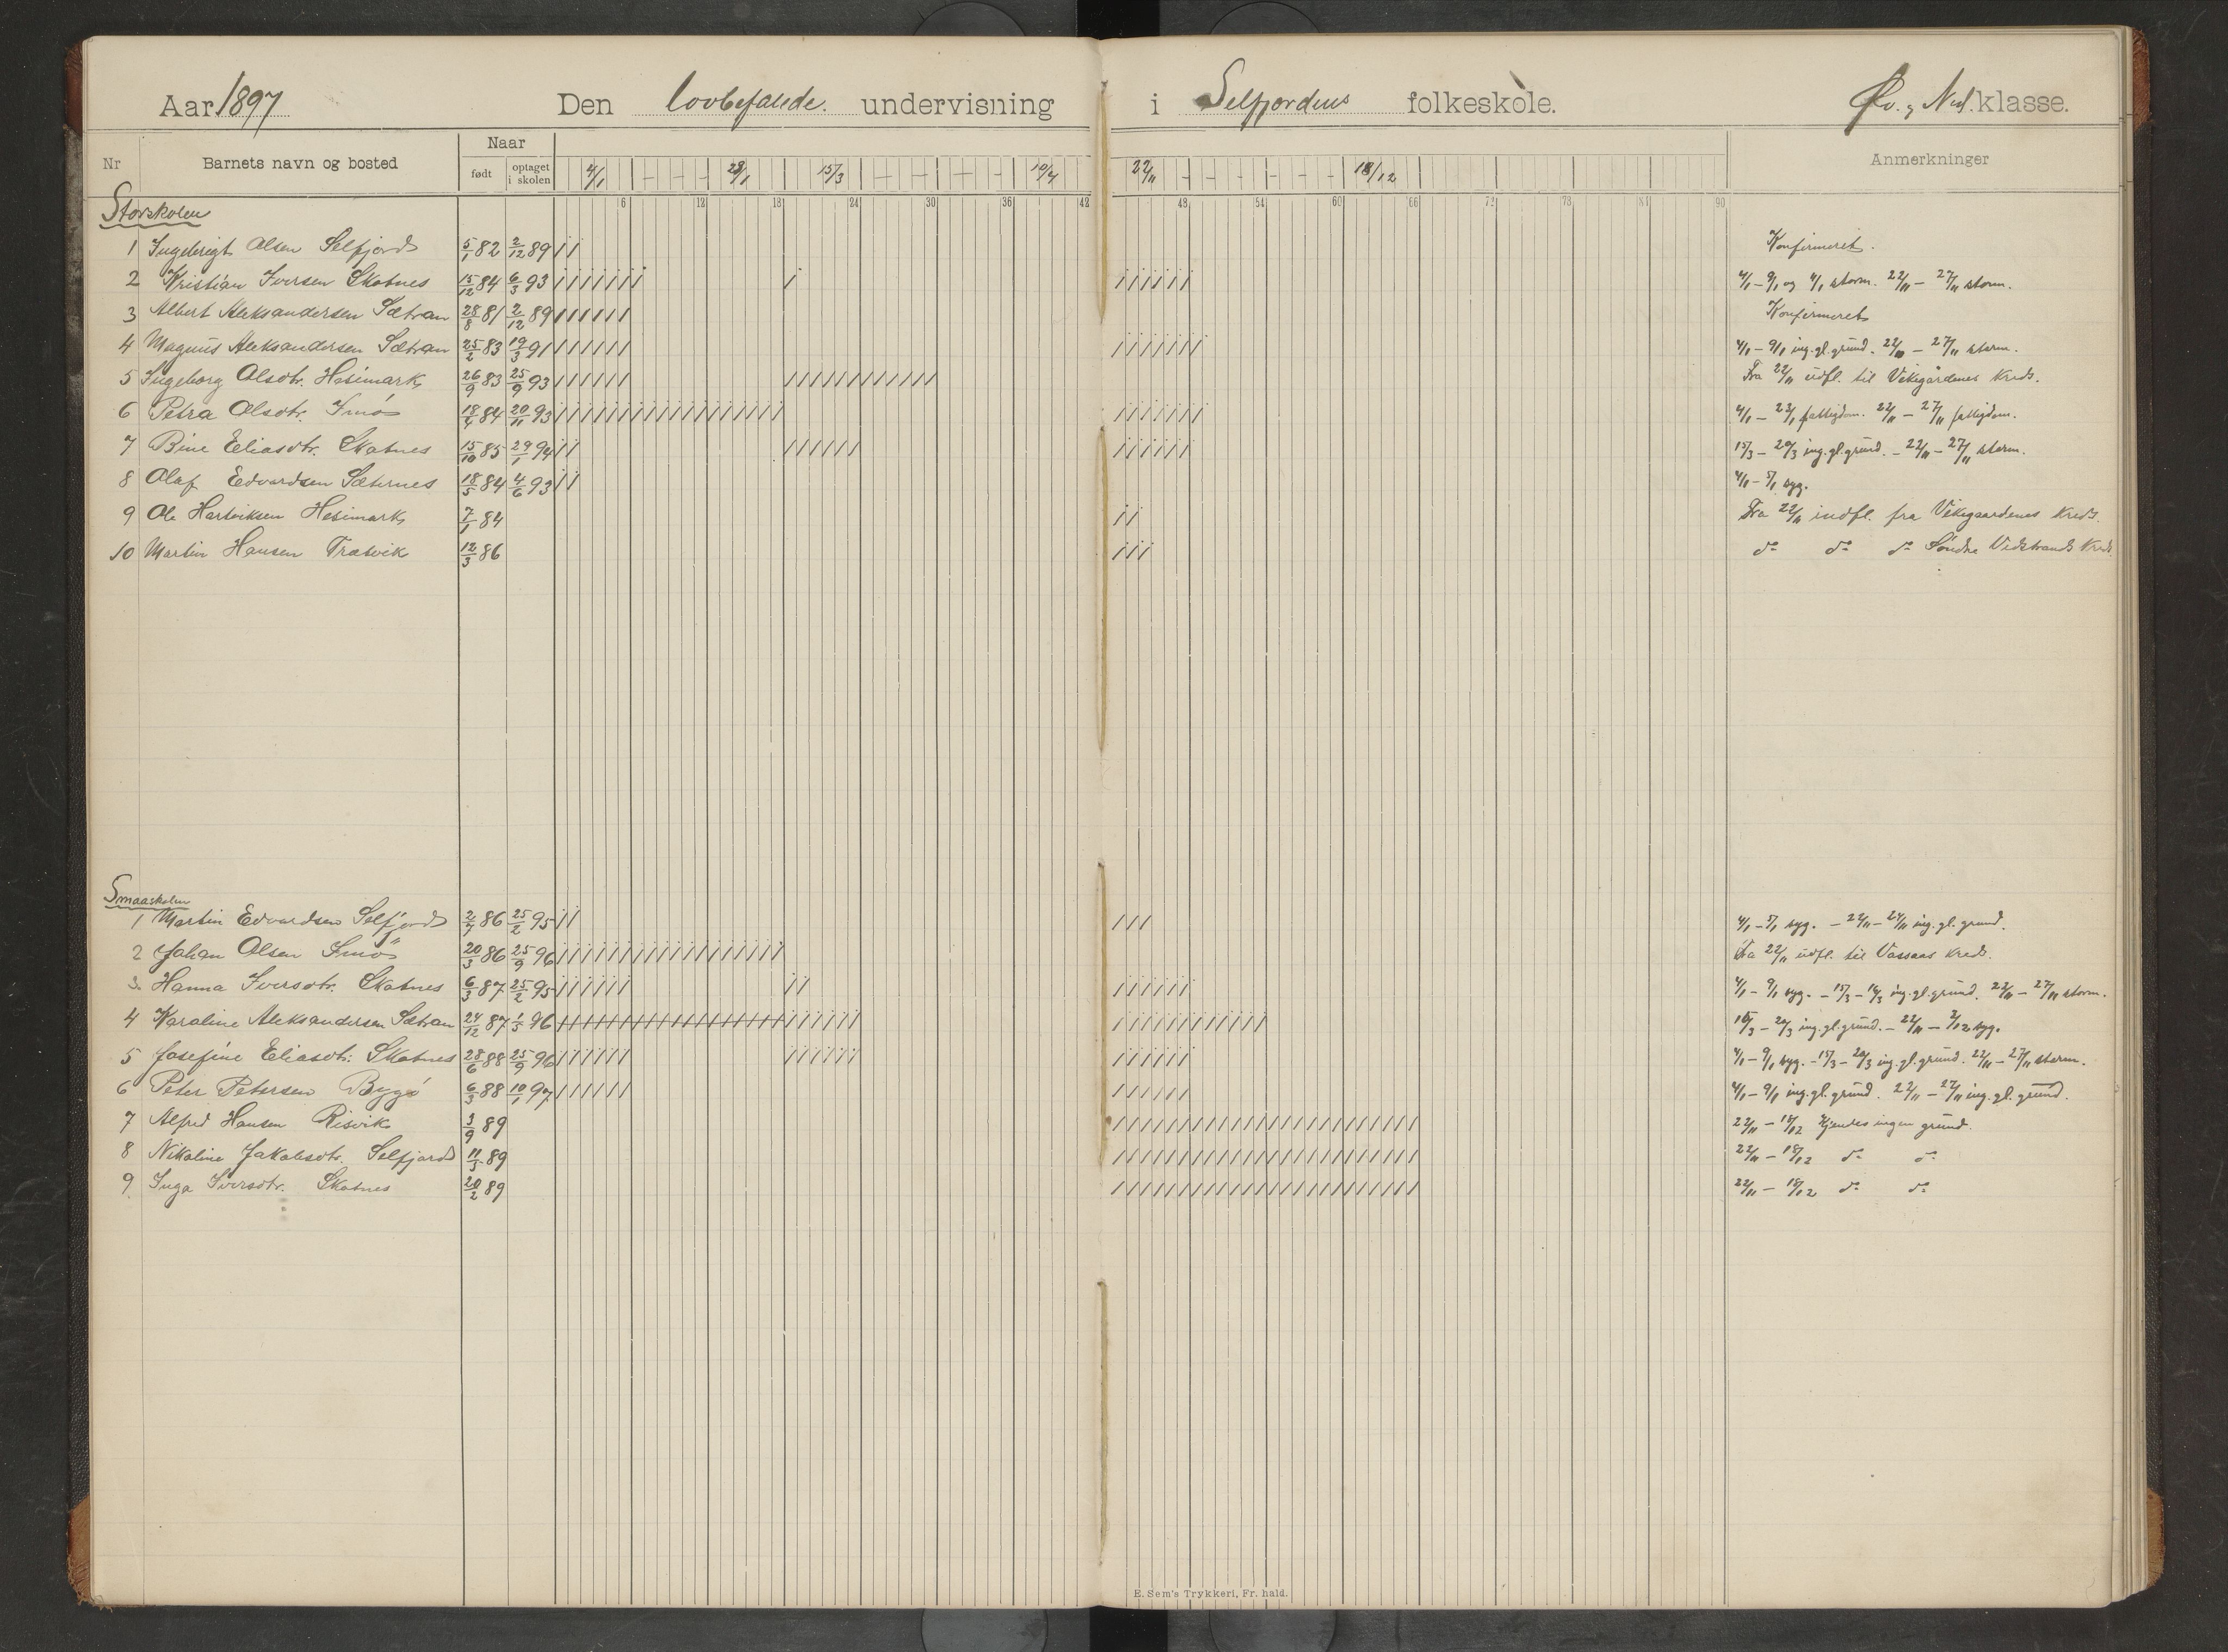 Aar 1897 Den lovbefalede. undervisning i Selfjordens folkeskole. Øv. og Ned. klasse.
Nr Barnets navn og bosted Naar Anmerkninger
født optaget i skolen 4/1 — — — 23/1 15/3 — — — — 10/4 22/11 — — — — — — 18/12
6 12 18 24 30 36 42 48 54 60 66 72 78 84 90
Storskolen
1 Ingebrigt Olsen Selfjord 5/1 82 2/12 89 Konfirmeret.
2 Kristian Iversen Skatnes 15/12 84 6/3 93 4/1 – 9/1 og 4/1 storm. 22/11 – 27/11 storm.
3 Albert Aleksandersen Sætran 28/8 81 2/12 89 Konfirmeret
4 Magnus Aleksandersen Sætran 25/2 83 19/3 91 4/1 – 9/1 ing. gl. grund. 22/11 – 27/11 storm.
5 Ingeborg Olsdtr. Hesimark 26/9 83 25/9 93 Fra 22/11 udfl. til Vikegårdenes Kreds.
6 Petra Olsdtr. Smø 18/4 84 20/11 93 4/1 – 23/1 fattigdom. 22/11 – 27/11 fattigdom.
7 Bine Eliasdtr. Skatnes 15/10 85 29/1 94 15/3 – 20/3 ing. gl. grund. – 22/11 – 27/11 storm.
8 Olaf Edvardsen Sæternes 18/5 84 4/6 93 4/1 – 5/1 syg.
9 Ole Hartviksen Hesimark 7/1 84 Fra 22/11 indfl. fra Vikegaardenes Kreds.
10 Martin Hansen Trætvik 12/3 86 do do do Søndre Vidstrands Kreds.
Smaaskolen
1 Martin Edvardsen Selfjord 2/7 86 25/2 95 4/1 – 5/1 syg. – 22/11 – 24/11 ing. gl. grund.
2 Johan Olsen Smø 20/3 86 25/9 96 Fra 22/11 udfl. til Vassaas Kreds.
3. Hanna Iversdtr. Skatnes 6/3 87 25/2 95 4/1 – 9/1 syg. – 15/3 – 16/3 ing. gl. grund. 22/11 – 27/11 storm.
4 Karoline Aleksandersen Sætran 24/12 87 1/5 96 15/3 – 20/3 ing. gl. grund. – 22/11 – 2/12 syg.
5 Josefine Eliasdtr. Skatnes 28/6 88 25/9 96 4/1 – 9/1 syg. – 15/3 – 20/3 ing. gl. grund. 22/11 – 27/11 storm.
6 Peter Petersen Bygø 6/3 88 10/1 97 4/1 – 9/1 ing. gl. grund. 22/11 – 27/11 ing. gl. grund.
7 Alfred Hansen Risvik 3/9 89 22/11 – 18/12 Kjendes ingen grund.
8 Nikoline Jakobsdtr. Selfjord 11/3 89 22/11 – 18/12 do do
9 Inga Iversdtr. Skatnes 20/2 89 22/11 – 18/12 do do
E. Sem's Trykkeri, Fr. hald.